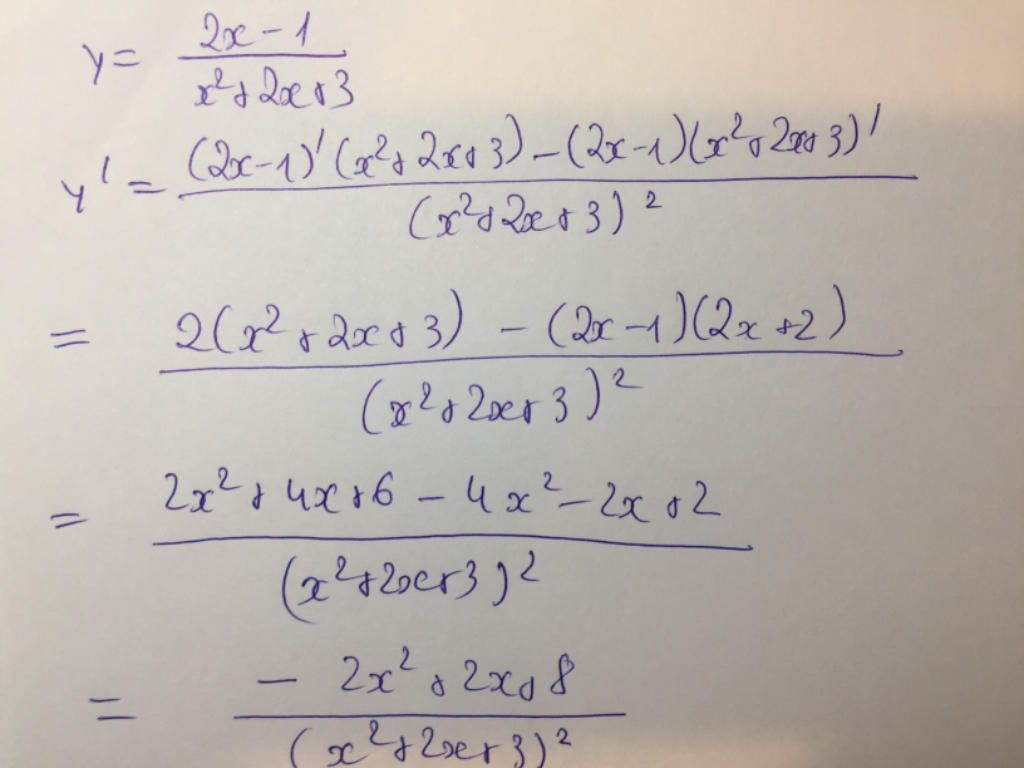 y = (2x - 1)/(x² + 2x + 3)
y' = ((2x - 1)'(x² + 2x + 3) - (2x - 1)(x² + 2x + 3)')/(x² + 2x + 3)²
= (2(x² + 2x + 3) - (2x - 1)(2x + 2))/(x² + 2x + 3)²
= (2x² + 4x + 6 - 4x² - 2x + 2)/(x² + 2x + 3)²
= (- 2x² + 2x + 8)/(x² + 2x + 3)²